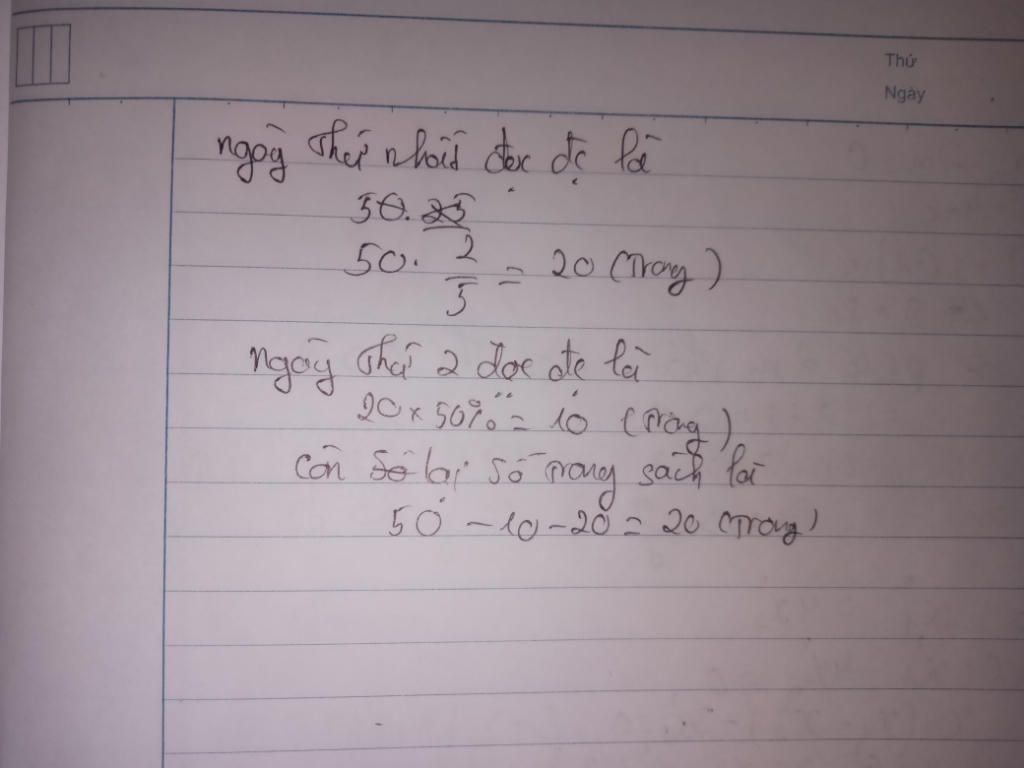 Thứ
Ngày
ngày thứ nhất đọc đc là
50. 25
50. 2/5 = 20 (Trang)
ngày thứ 2 đọc đc là
20 x 50% = 10 (Trang)
còn số lại số trang sách là
50 - 10 - 20 = 20 (Trang)